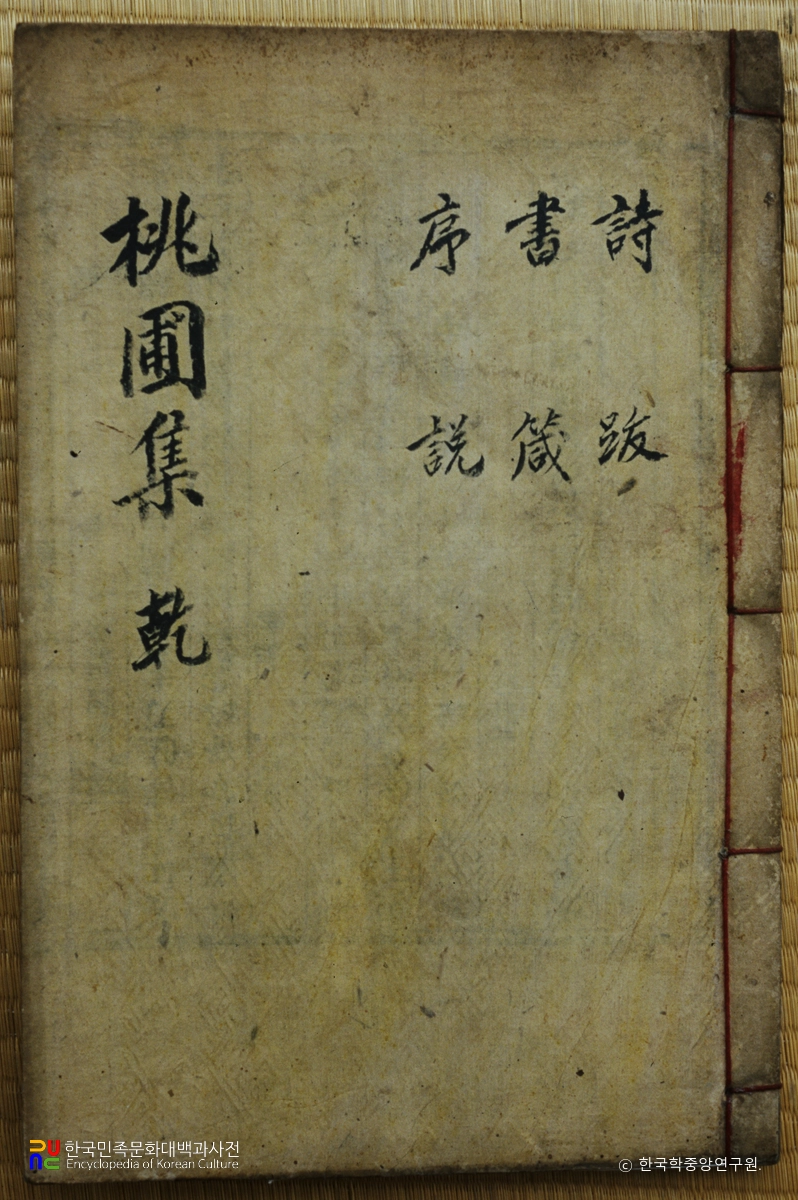 詩 跋
書 箴
序 説
桃圃集 乾
한국민족문화대백과사전
Encyclopedia of Korean Culture
© 한국학중앙연구원.